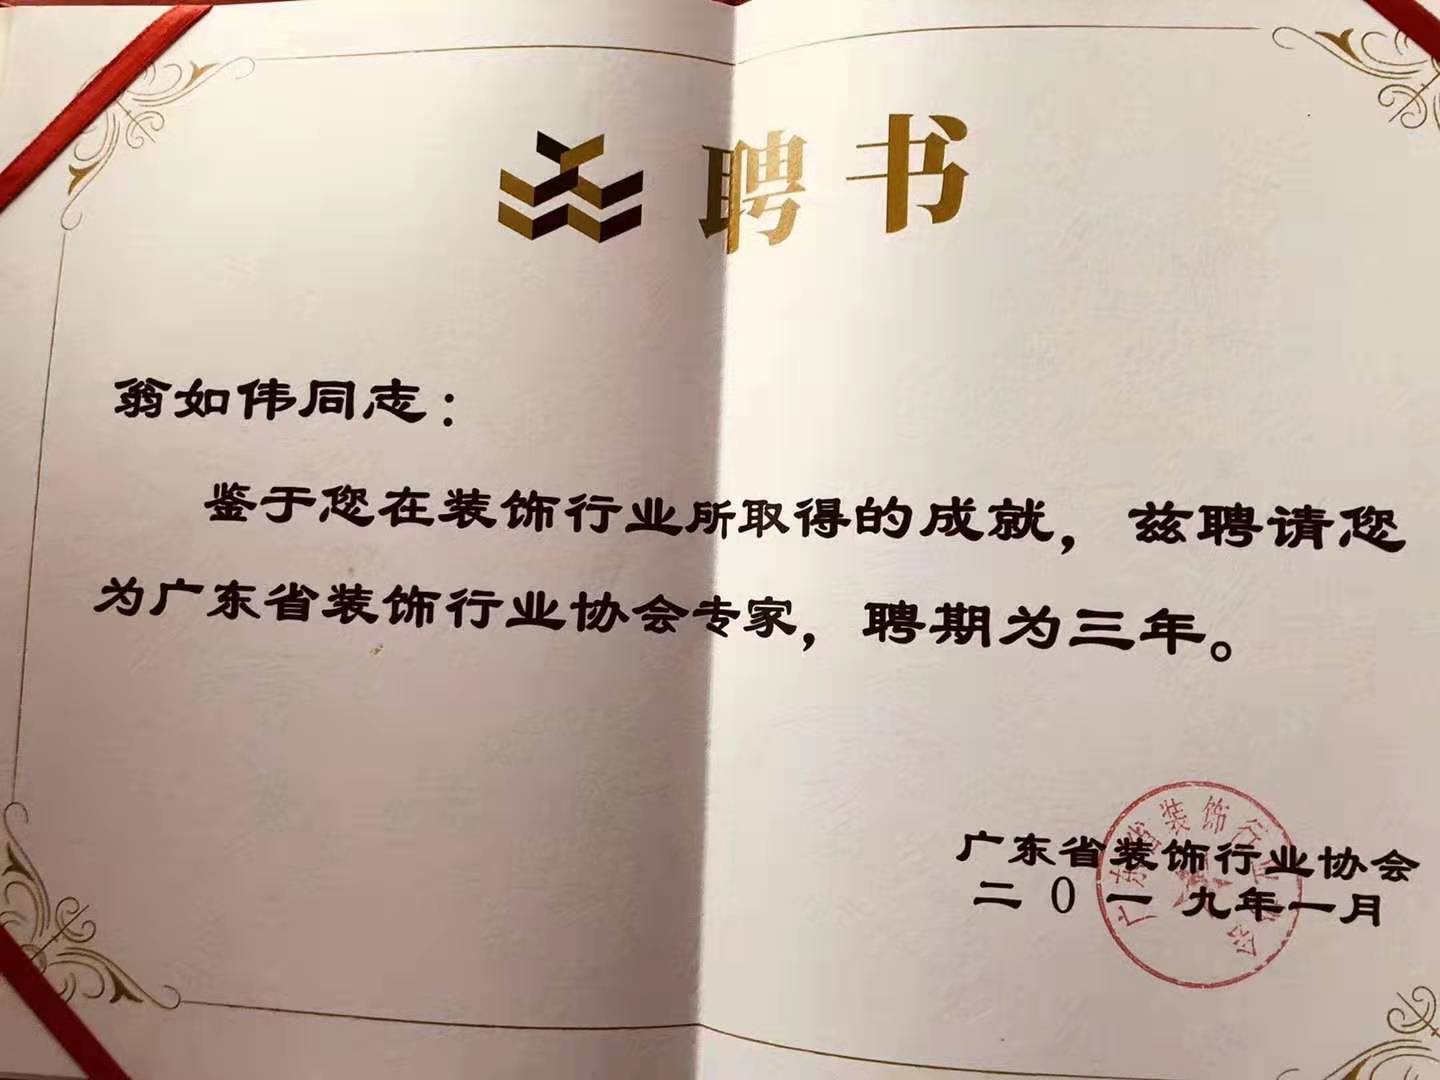 聘书
翁如伟同志：
鉴于您在装饰行业所取得的成就，兹聘请您
为广东省装饰行业协会专家，聘期为三年。
广东省装饰行业协会
二0一九年一月
广东省装饰行业协会